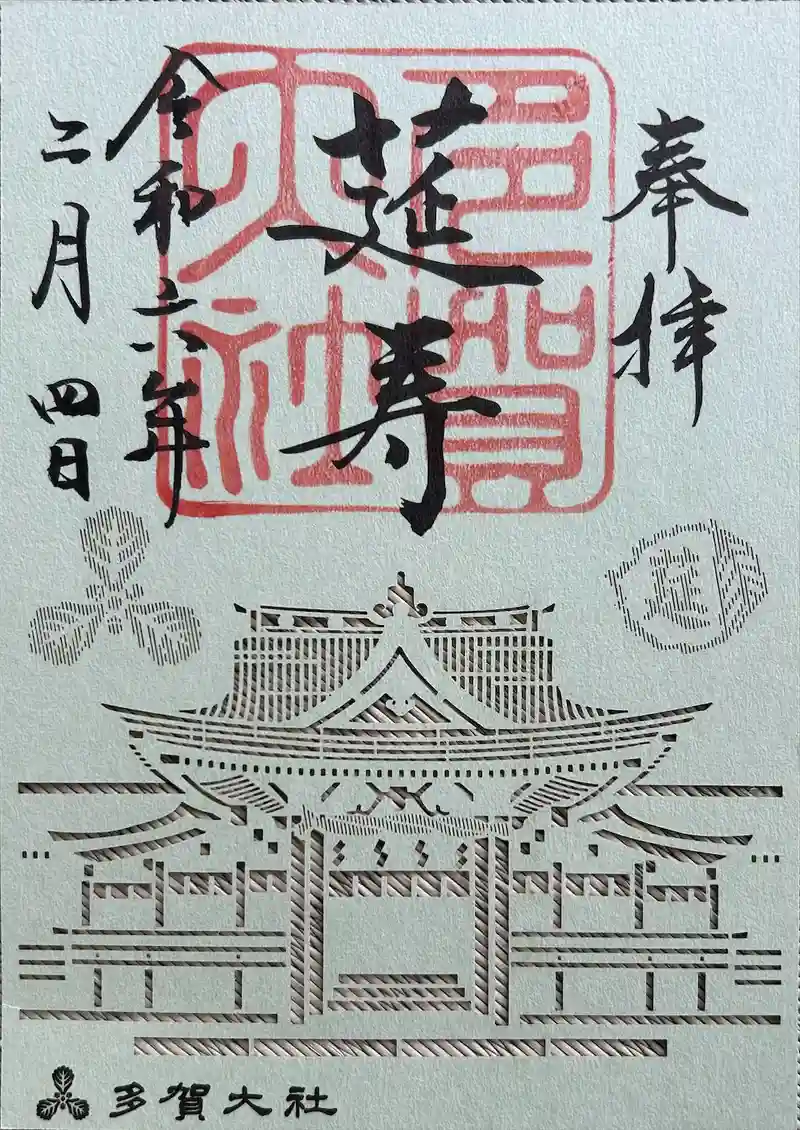 奉拝
莚寿
令和六年
二月四日
多賀大社
莚
多賀大社